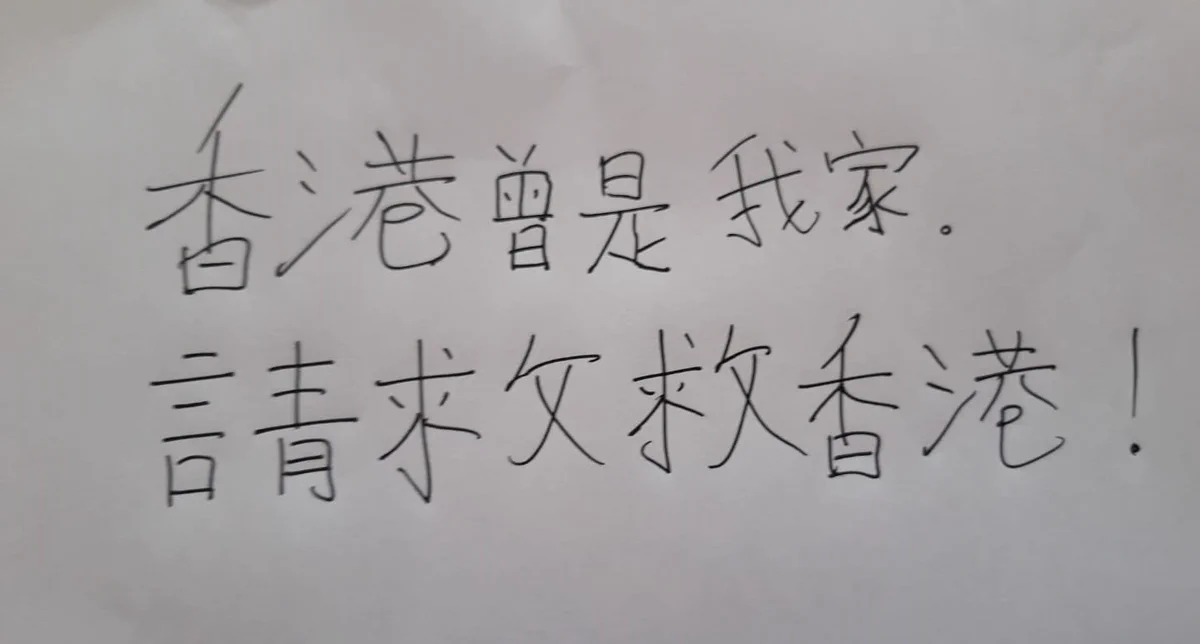 香港曾是我家.
請求攵救香港!